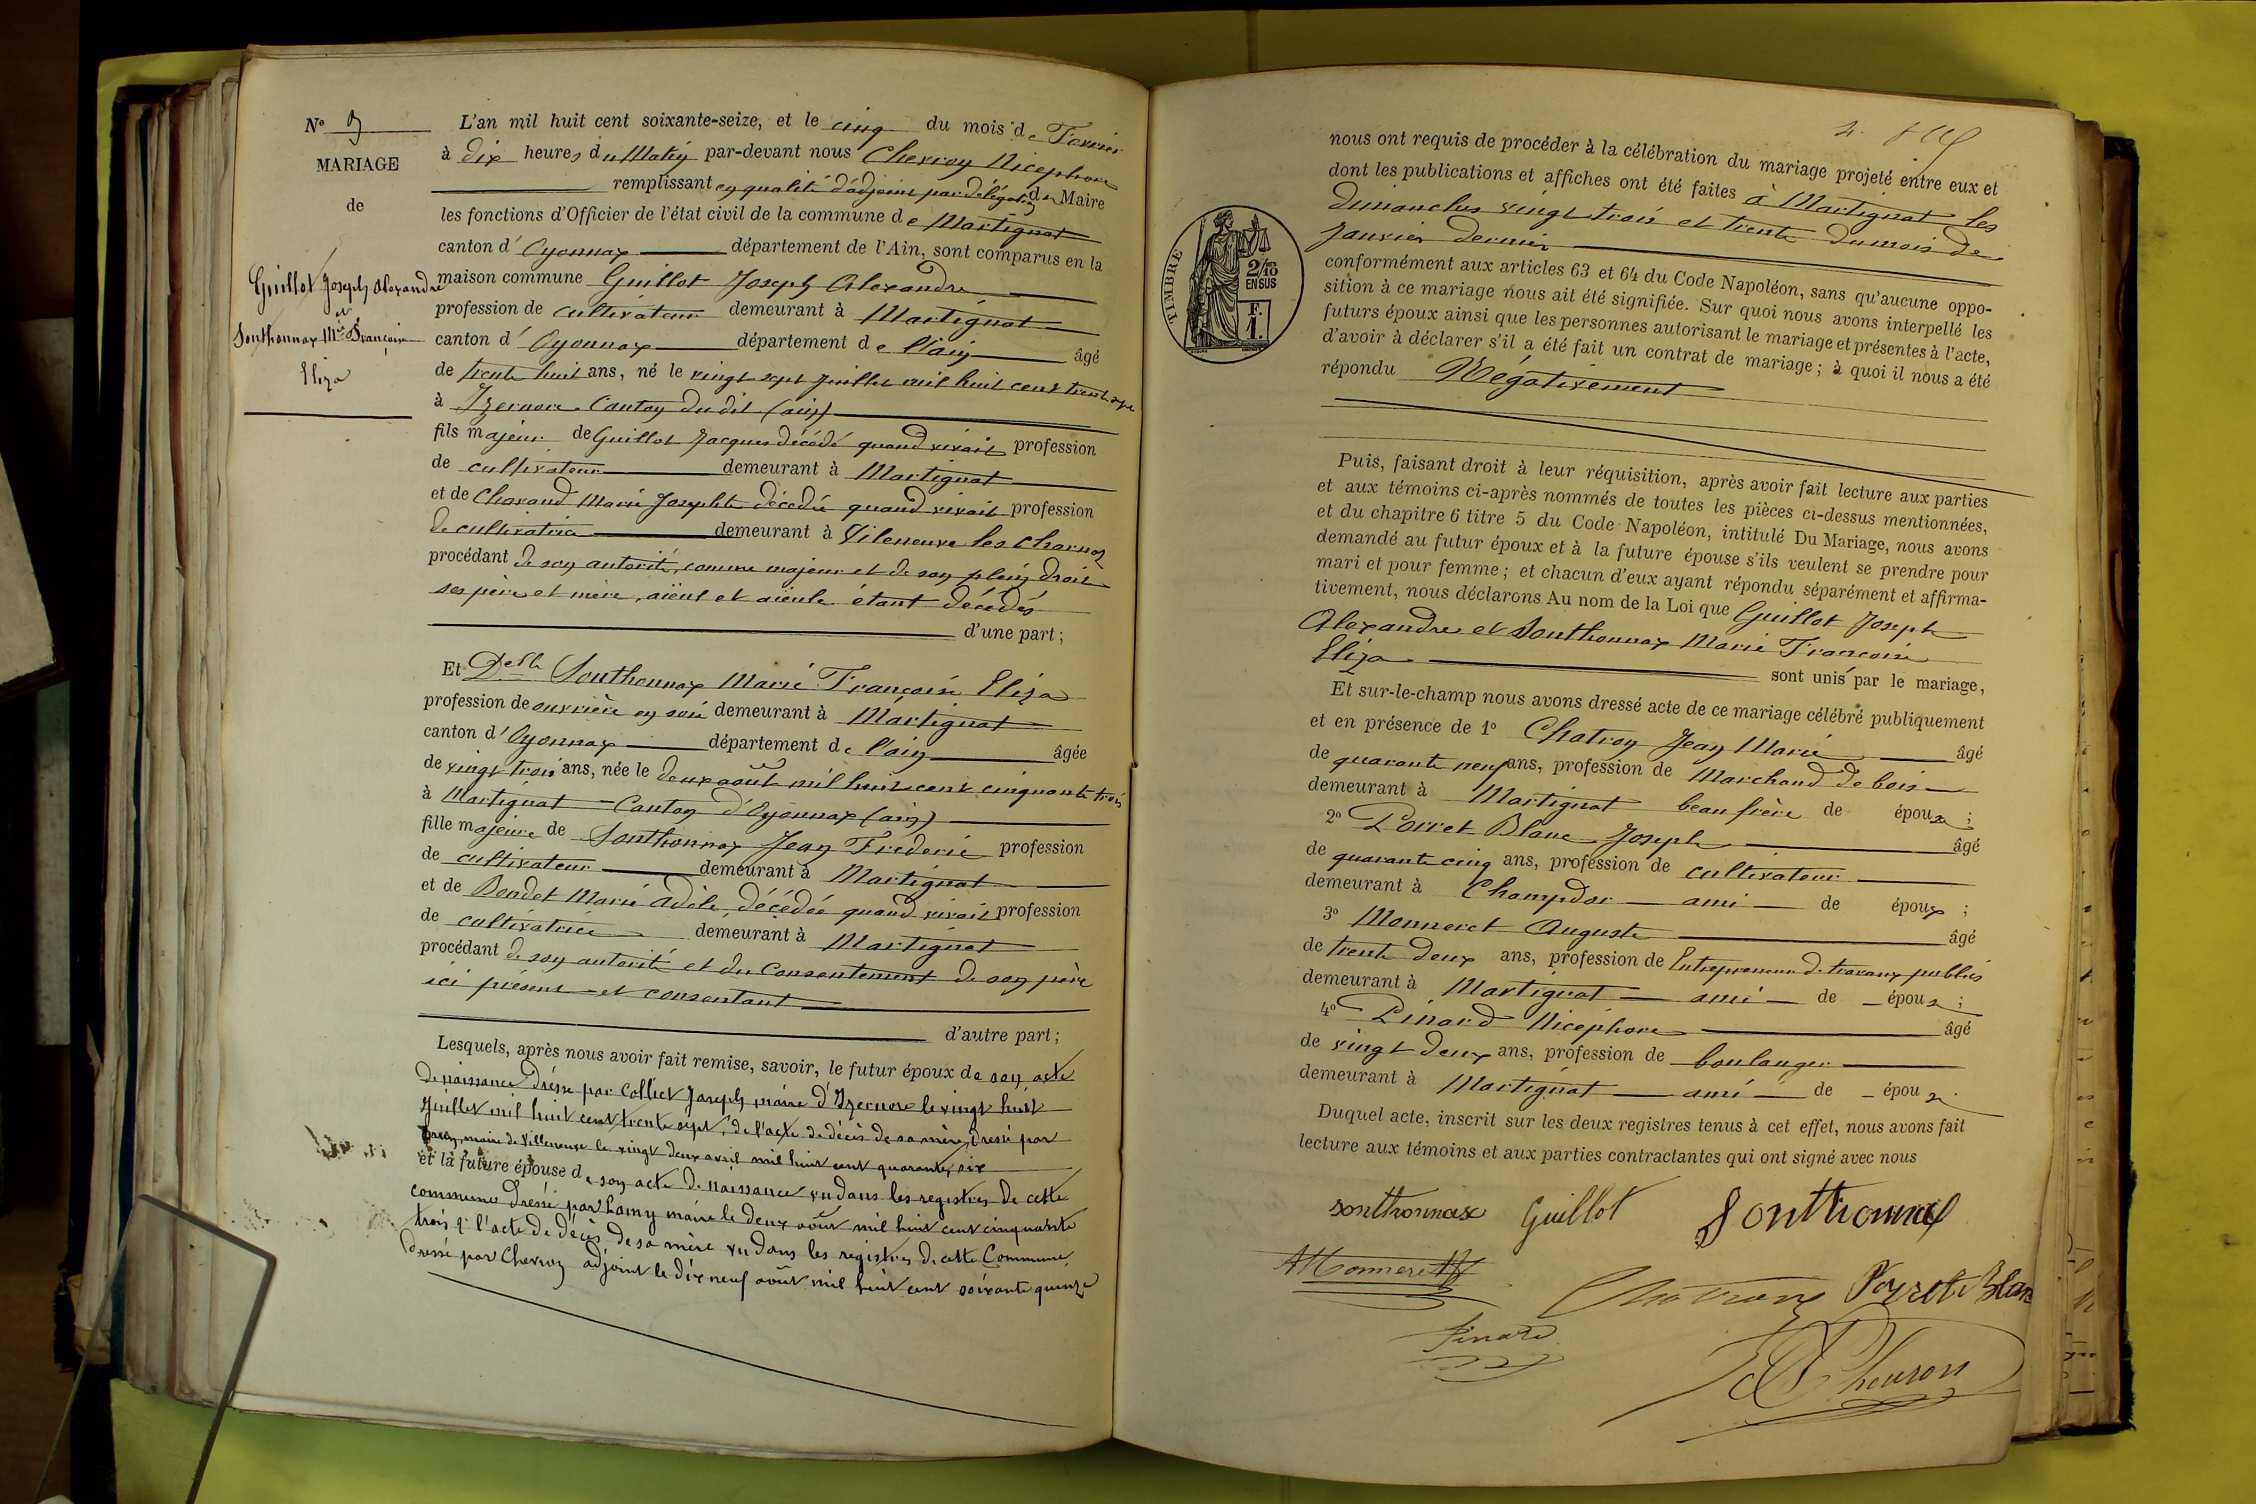 N° 3
MARIAGE
de
Guillot Joseph Alexandre
et
Sonthonnax Mie Françoise
Eliza
L'an mil huit cent soixante-seize, et le cinq du mois de Fevrier
à dix heures du Matin par-devant nous Chevron Nicephore
remplissant en qualité d'adjoint par délégation du Maire
les fonctions d'Officier de l'état civil de la commune de Martignat
canton d'Oyonnax département de l'Ain, sont comparus en la
maison commune Guillot Joseph Alexandre
profession de cultivateur demeurant à Martignat
canton d'Oyonnax département de l'ain âgé
de trente huit ans, né le vingt sept Juillet mil huit cent trente sept
à Izernore Canton du dit (ain)
fils majeur de Guillot Jacques décédé quand vivait profession
de cultivateur demeurant à Martignat
et de Charand Marie Josephte décédée quand vivait profession
de cultivatrice demeurant à Vileneuve les Charnoz
procédant de son autorité, comme majeur et de son plein droit
ses père et mère, aïeul et aïeule étant décédés
d'une part;
Et Delle Sonthonnax Marie Françoise Eliza
profession de ouvrière en soie demeurant à Martignat
canton d'Oyonnax département de l'ain âgée
de vingt trois ans, née le deux août mil huit cent cinquante trois
à Martignat - Canton d'Oyonnax (ain)
fille majeure de Sonthonnax Jean Frederic profession
de cultivateur demeurant à Martignat
et de Bondet Marie Adèle, décédée quand vivait profession
de cultivatrice demeurant à Martignat
procédant de son autorité et du Consentement de son père
ici présent et consentant
d'autre part;
Lesquels, après nous avoir fait remise, savoir, le futur époux de son acte
de naissance dressé par Colliet Joseph, maire d'Izernore le vingt huit
Juillet mil huit cent trente sept, de l'acte de décès de sa mère, dressé par
maire de Villeneuve le vingt deux avril mil huit cent quarante six
et la future épouse de son acte de naissance vu dans les registres de cette
commune dressé par Lamy maire le deux août mil huit cent cinquante
trois & l'acte de décès de sa mère vu dans les registres de cette Commune,
dressé par Chevron adjoint le dix neuf août mil huit cent soixante quinze
4.
nous ont requis de procéder à la célébration du mariage projeté entre eux et
dont les publications et affiches ont été faites à Martignat les
dimanches vingt trois et trente du mois de
Janvier dernier
TIMBRE
2/10
EN SUS
F.
1.
conformément aux articles 63 et 64 du Code Napoléon, sans qu'aucune oppo-
sition à ce mariage nous ait été signifiée. Sur quoi nous avons interpellé les
futurs époux ainsi que les personnes autorisant le mariage et présentes à l'acte,
d'avoir à déclarer s'il a été fait un contrat de mariage; à quoi il nous a été
répondu Négativement
Puis, faisant droit à leur réquisition, après avoir fait lecture aux parties
et aux témoins ci-après nommés de toutes les pièces ci-dessus mentionnées,
et du chapitre 6 titre 5 du Code Napoléon, intitulé Du Mariage, nous avons
demandé au futur époux et à la future épouse s'ils veulent se prendre pour
mari et pour femme; et chacun d'eux ayant répondu séparément et affirma-
tivement, nous déclarons Au nom de la Loi que Guillot Joseph
Alexandre et Sonthonnax Marie Françoise
Eliza
sont unis par le mariage,
Et sur-le-champ nous avons dressé acte de ce mariage célébré publiquement
et en présence de 1° Chatron Jean Marie âgé
de quarante neuf ans, profession de Marchand de bois
demeurant à Martignat beau frère de époux;
2° Porret Blanc Joseph âgé
de quarante cinq ans, profession de cultivateur
demeurant à Champdor ami de époux;
3° Monneret Auguste âgé
de trente deux ans, profession de Entrepreneur de travaux publics
demeurant à Martignat ami de époux;
4° Pinard Nicéphore âgé
de vingt deux ans, profession de boulanger
demeurant à Martignat ami de époux
Duquel acte, inscrit sur les deux registres tenus à cet effet, nous avons fait
lecture aux témoins et aux parties contractantes qui ont signé avec nous
sonthonnax Guillot Sonthonnax
AMonneret Chatron Porret Blanc
Pinard
Chevron